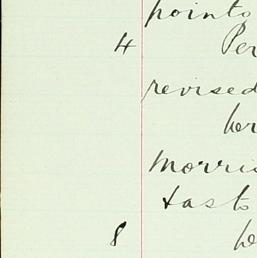 points
4 Per
revised
her
Morris
tasto
8 he